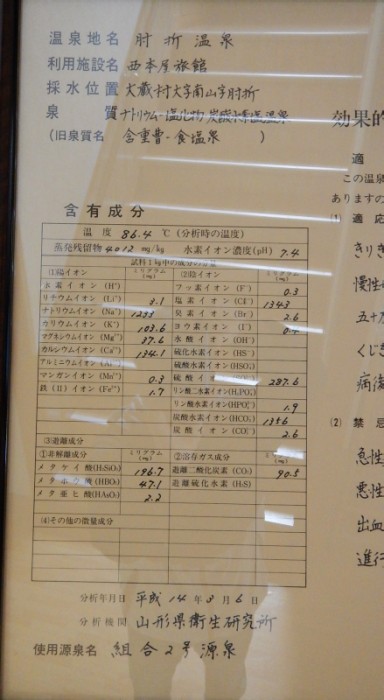 温泉地名 肘折温泉
利用施設名 西本屋旅館
採水位置 大蔵村大字南山字肘折
泉質 ナトリウム-塩化物・炭酸水素塩温泉
(旧泉質名 含重曹-食塩泉 )
含有成分
温度 86.4 ℃ (分析時の温度)
蒸発残留物 4012 mg/kg 水素イオン濃度(pH) 7.4
試料1kg中の成分の分量
(1)陽イオン ミリグラム(mg) (2)陰イオン ミリグラム(mg)
水素イオン (H⁺) フッ素イオン (F⁻) 0.3
リチウムイオン (Li⁺) 3.1 塩素イオン (Cl⁻) 1343
ナトリウムイオン (Na⁺) 臭素イオン (Br⁻) 2.6
カリウムイオン (K⁺) 103.6 ヨウ素イオン (I⁻)
マグネシウムイオン (Mg⁺⁺) 37.6 水酸イオン (OH⁻)
カルシウムイオン (Ca⁺⁺) 134.1 硫化水素イオン (HS⁻)
アルミニウムイオン 硫酸水素イオン(HSO₄⁻)
マンガンイオン (Mn⁺⁺) 0.3 硫酸イオン 287.6
鉄(II)イオン (Fe⁺⁺) 1.7 リン酸二水素イオン(H₂PO₄⁻)
リン酸水素イオン(HPO₄⁻⁻) 1.9
炭酸水素イオン(HCO₃⁻) 1356
炭酸イオン (CO₃⁻⁻) 2.6
(3)遊離成分
①非解離成分 ミリグラム(mg) ②溶存ガス成分 ミリグラム(mg)
メタケイ酸(H₂SiO₃) 196.7 遊離二酸化炭素 (CO₂) 90.5
メタホウ酸(HBO₂) 47.1 遊離硫化水素 (H₂S)
メタ亜ヒ酸(HAsO₂) 2.2
(4)その他の微量成分
分析年月日 平成14年3月6日
分析機関 山形県衛生研究所
使用源泉名 組合2号源泉
効果的
適
この温泉
ありますの
(1) 適 応
きりき
慢性
五十
くじ
病後
(2) 禁
急性
悪性
出血
進行